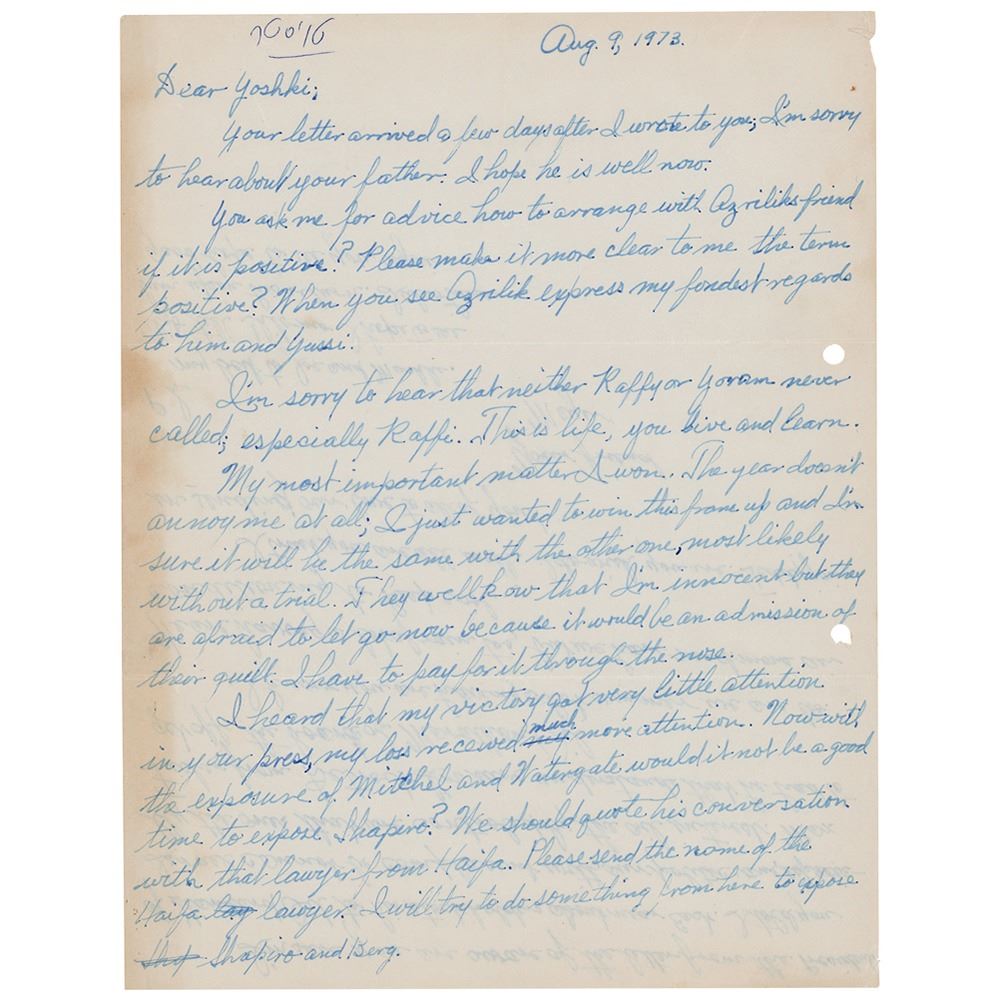 Aug. 9, 1973.
Dear Yoshki;
Your letter arrived a few days after I wrote to you; I'm sorry
to hear about your father. I hope he is well now.
You ask me for advice how to arrange with Azriliks friend
if it is positive? Please make it more clear to me the term
positive? When you see Azrilik express my fondest regards
to him and Yussi.
I'm sorry to hear that neither Raffy or Yoram never
called; especially Raffi. This is life, you live and learn.
My most important matter I won. The year doesn't
annoy me at all; I just wanted to win this frame up and I'm
sure it will be the same with the other one, most likely
without a trial. They well know that I'm innocent but they
are afraid to let go now because it would be an admission of
their guilt. I have to pay for it through the nose.
I heard that my victory got very little attention
in your press, my loss received much more attention. Now with
the exposure of Mitchel and Watergate would it not be a good
time to expose Shapiro? We should quote his conversation
with that lawyer from Haifa. Please send the name of the
Haifa lay lawyer. I will try to do something from here to expose
Shapiro and Berg.